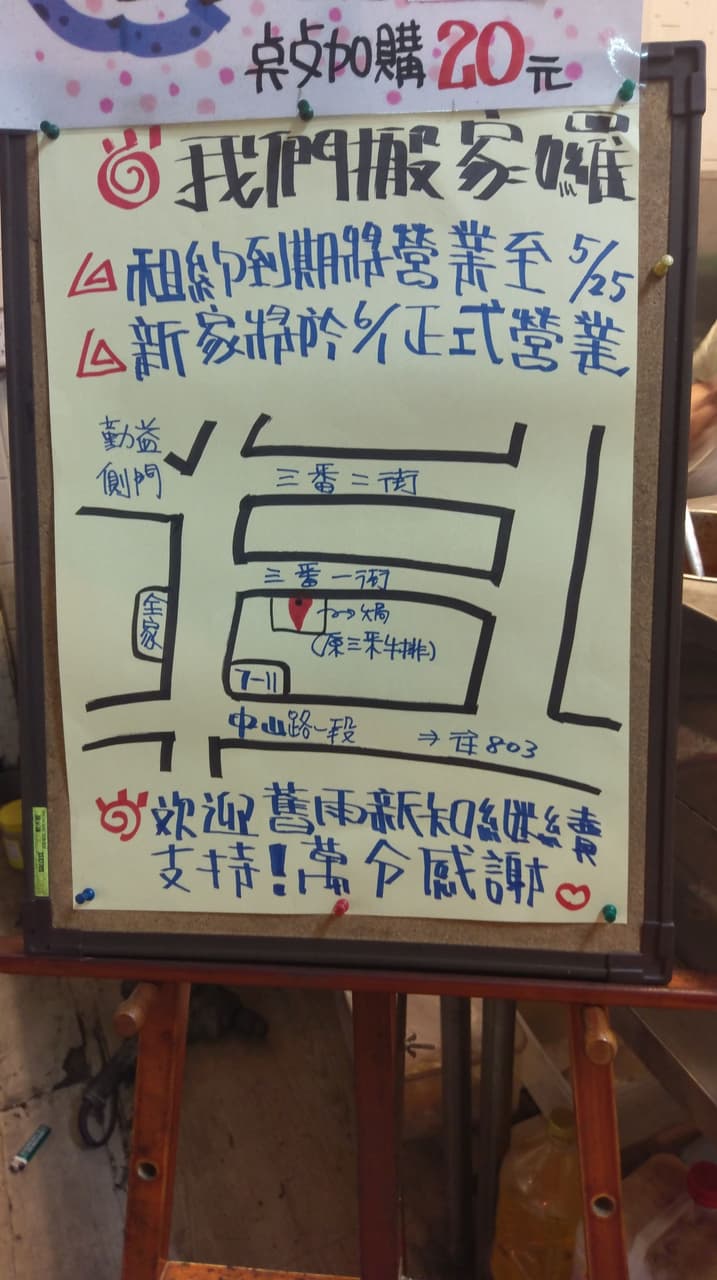 點加購20元
我們搬家囉
租約到期將營業至5/25
新家將於6/1正式營業
勤益
側門
三番二街
三番一街
全家
(原三釆牛排)
7-11
中山路一段
→往803
欢迎舊雨新知繼續
支持!萬分感謝